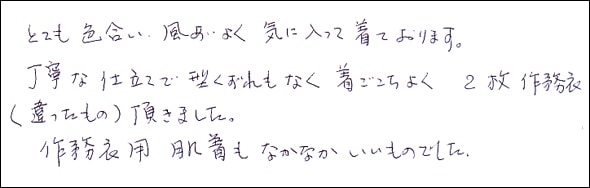 とても 色合い、風あい よく 気に入って 着ております。
丁寧な仕立てで 型くずれもなく 着ごこちよく 2枚作務衣
(違ったもの) 頂きました。
作務衣用 肌着も なかなか いいものでした.